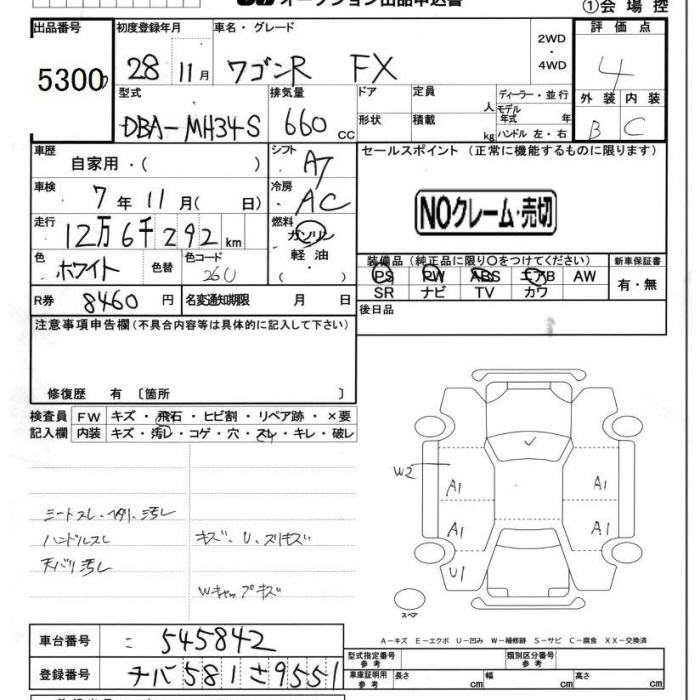 オークション出品申込書
①会場控
出品番号 5300
初度登録年月 28 11月
車名・グレード ワゴンR FX
2WD・4WD
評価点 4
型式 DBA-MH34S
排気量 660 cc
ドア 形状
定員 人
積載 kg
ディーラー・並行
モデル年式 年
ハンドル 左・右
外装 B
内装 C
車歴 自家用・( )
シフト AT
セールスポイント (正常に機能するものに限ります)
車検 7年11月( 日)
冷房 AC
NOクレーム・売切
走行 12万6千292km
燃料 ガソリン 軽油 ・( )
色 ホワイト
色替
色コード 26U
装備品 (純正品に限り○をつけてください)
PS PW ABS エアB AW
SR ナビ TV カワ
新車保証書 有・無
R券 8460 円
名変通知期限 月 日
後日品
注意事項申告欄(不具合内容等は具体的に記入して下さい)
修復歴 有 〔箇所 〕
検査員 FW キズ・飛石・ヒビ割・リペア跡・×要
記入欄 内装 キズ・汚レ・コゲ・穴・スレ・キレ・破レ
シートスレ・ヘタリ、汚レ
ハンドルスレ
キズ、U、スリキズ
天バリ汚レ
Wキャップキズ
U
W2
A1 A1
A1 A1
U1
スペア
A-キズ E-エクボ U-凹み W-補修跡 S-サビ C-腐食 XX-交換済
車台番号 : 545842
登録番号 チバ581さ9551
型式指定番号 参考
類別区分番号 参考
車庫証明用 参考 長さ cm 幅 cm 高さ cm